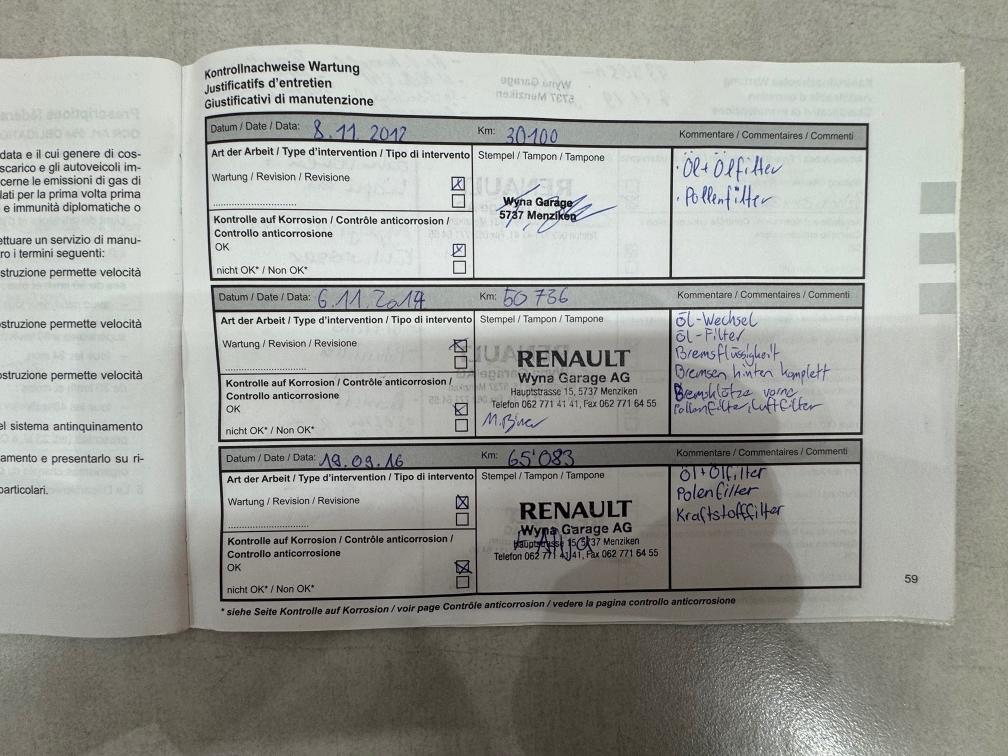 data e il cui genere di cos-
scarico e gli autoveicoli im-
cerne le emissioni di gas di
lati per la prima volta prima
e immunità diplomatiche o
ettuare un servizio di manu-
ro i termini seguenti:
struzione permette velocità
ostruzione permette velocità
ostruzione permette velocità
el sistema antinquinamento
amento e presentarlo su ri-
particolari.
Kontrollnachweise Wartung
Justificatifs d'entretien
Giustificativi di manutenzione
Datum / Date / Data: 8.11.2012 Km: 30100 Kommentare / Commentaires / Commenti
Art der Arbeit / Type d'intervention / Tipo di intervento Stempel / Tampon / Tampone
Wartung / Revision / Revisione
Kontrolle auf Korrosion / Contrôle anticorrosion /
Controllo anticorrosione
OK
nicht OK* / Non OK*
Wyna Garage
5737 Menziken
· Öl + Ölfilter
· Pollenfilter
Datum / Date / Data: 6.11.2014 Km: 50 736 Kommentare / Commentaires / Commenti
Art der Arbeit / Type d'intervention / Tipo di intervento Stempel / Tampon / Tampone
Wartung / Revision / Revisione
Kontrolle auf Korrosion / Contrôle anticorrosion /
Controllo anticorrosione
OK
nicht OK* / Non OK*
RENAULT
Wyna Garage AG
Hauptstrasse 15, 5737 Menziken
Telefon 062 771 41 41, Fax 062 771 64 55
öl-Wechsel
öl-Filter
Bremsflüssigkeit
Bremsen hinten komplett
Bremsklötze vorne
Pollenfilter, Luftfilter
Datum / Date / Data: 19.09.16 Km: 65'083 Kommentare / Commentaires / Commenti
Art der Arbeit / Type d'intervention / Tipo di intervento Stempel / Tampon / Tampone
Wartung / Revision / Revisione
Kontrolle auf Korrosion / Contrôle anticorrosion /
Controllo anticorrosione
OK
nicht OK* / Non OK*
RENAULT
Wyna Garage AG
Hauptstrasse 15, 5737 Menziken
Telefon 062 771 41 41, Fax 062 771 64 55
Öl + Ölfilter
Polenfilter
Kraftstofffilter
59
* siehe Seite Kontrolle auf Korrosion / voir page Contrôle anticorrosion / vedere la pagina controllo anticorrosione